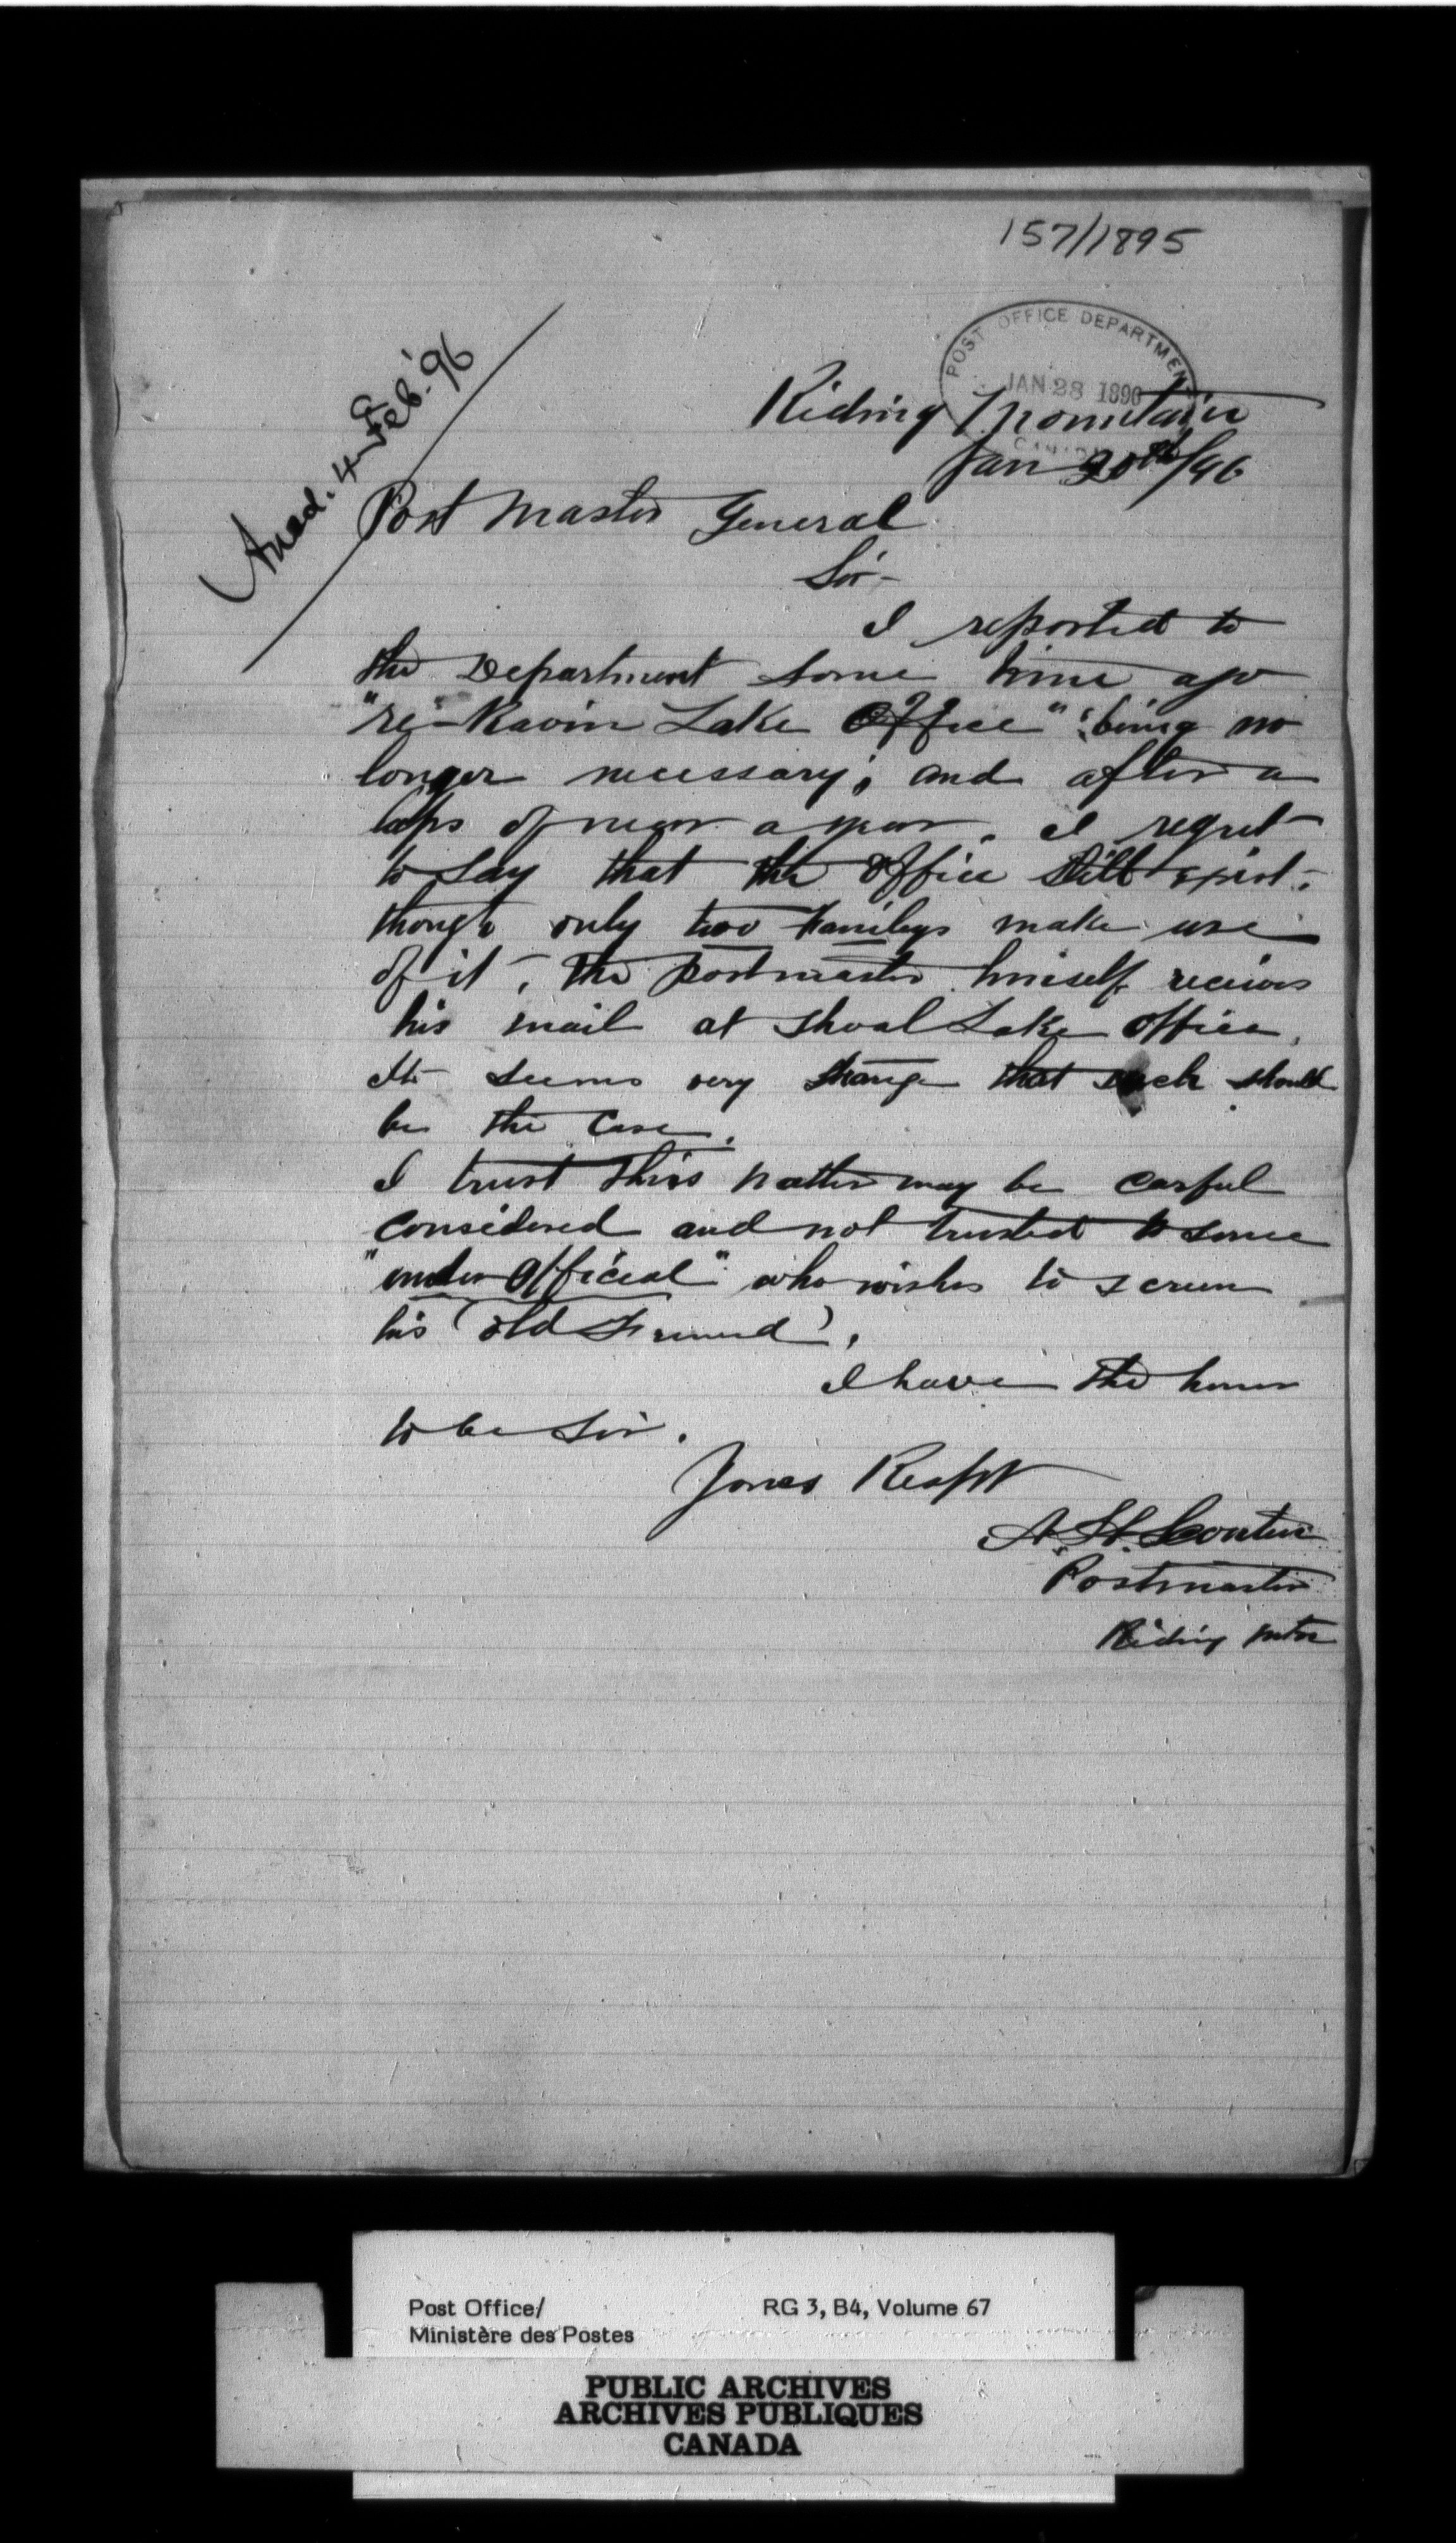 157/1895
POST OFFICE DEPARTMENT
JAN 28 1896
CANADA
Ansd. 4 Feb. '96
Riding Mountain
Jan 20th/96
Post Master General
Sir-
I reported to
the Department some time ago
"re-Ravin Lake Office" being no
longer necessary, and after a
laps of near a year. I regret
to say that the Office still exist.
though only two familys make use
of it, the postmaster himself receives
his mail at Shoal Lake office,
It seems very strange that such should
be the case.
I trust this matter may be carful
considered and not trusted to some
"under Official" who wishes to screen
his 'old Friend'.
I have the honor
to be Sir.
Yores Respt
A. H.
Postmaster
Riding Mtn
Post Office/
Ministère des Postes
RG 3, B4, Volume 67
PUBLIC ARCHIVES
ARCHIVES PUBLIQUES
CANADA